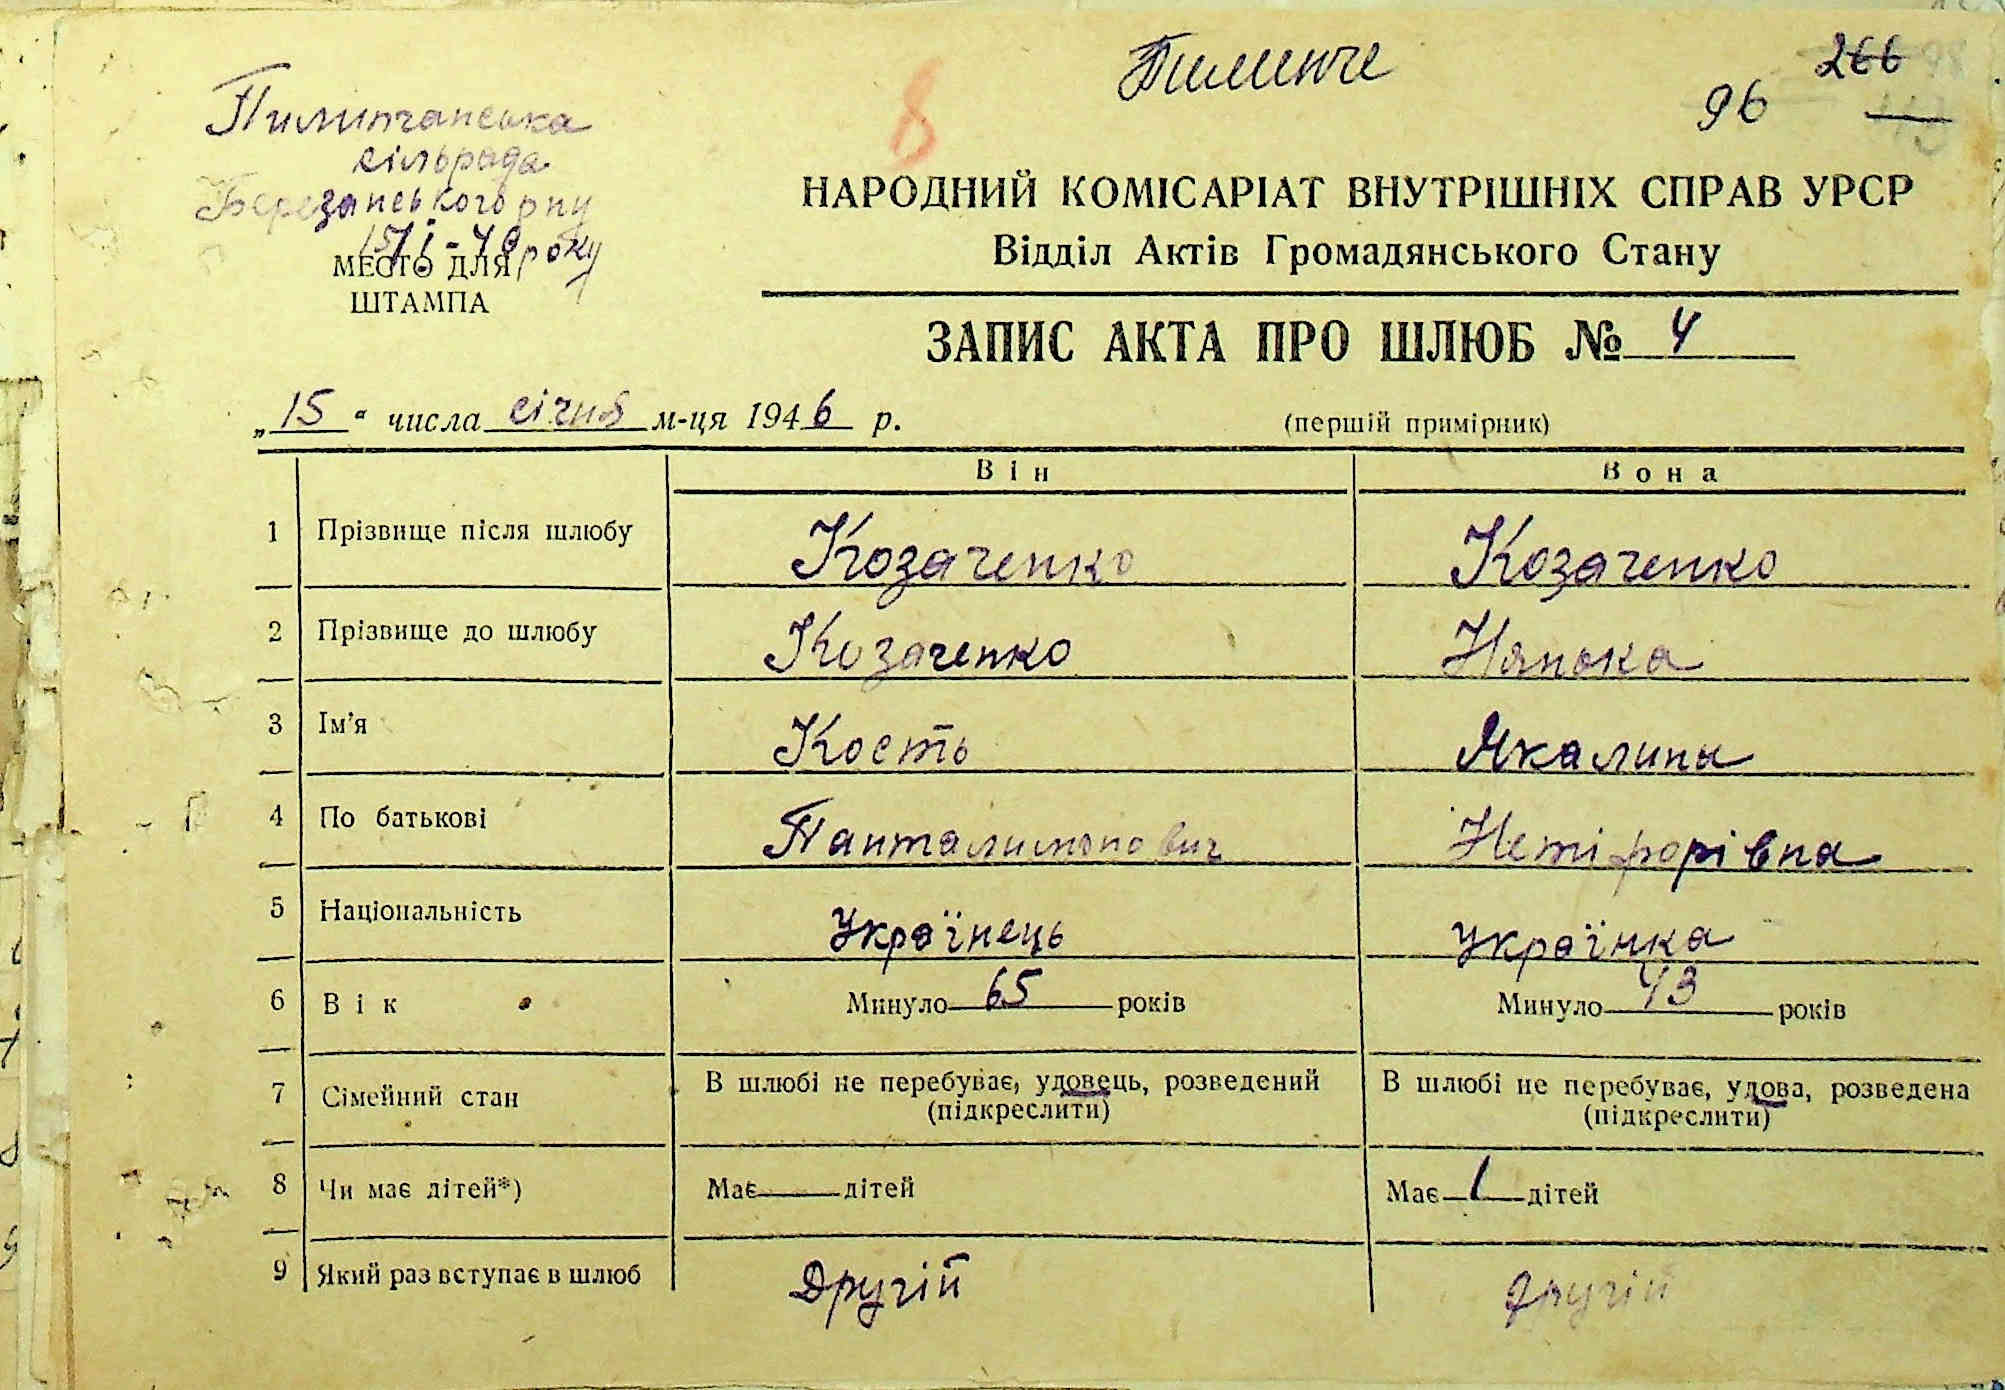 Пилипче
266
96
8
Пилипчанська
сільрада
Березанського р-ну
15/I-46 року
МЕСТО ДЛЯ
ШТАМПА
НАРОДНИЙ КОМІСАРІАТ ВНУТРІШНІХ СПРАВ УРСР
Відділ Актів Громадянського Стану
ЗАПИС АКТА ПРО ШЛЮБ № 4
„15“ числа січня м-ця 1946 р. (першій примірник)
Він Вона
1 Прізвище після шлюбу Козаченко Козаченко
2 Прізвище до шлюбу Козаченко Нянька
3 Ім'я Кость Якалина
4 По батькові Панталимонович Нетіфорівна
5 Національність Українець Українка
6 Вік Минуло 65 років Минуло 43 років
7 Сімейний стан В шлюбі не перебуває, удовець, розведений (підкреслити) В шлюбі не перебуває, удова, розведена (підкреслити)
8 Чи має дітей*) Має — дітей Має 1 дітей
9 Який раз вступає в шлюб Другій Другій